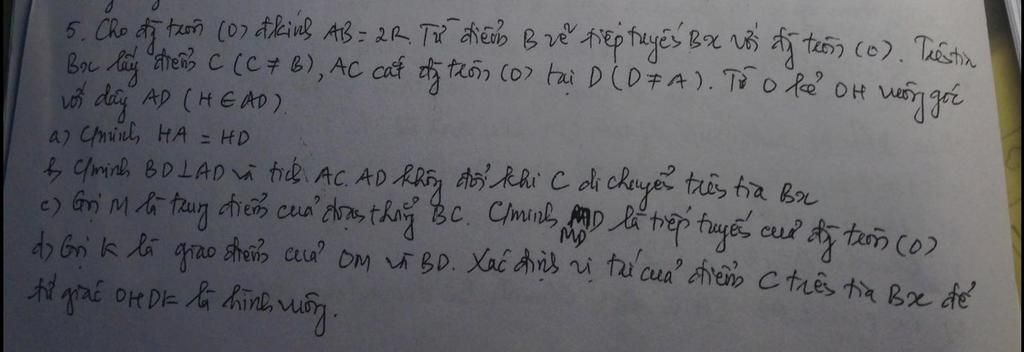 5. Cho đg tròn (O) đkính AB = 2R. Từ điểm B vẽ tiếp tuyến Bx với đg tròn (O). Trên tia
Bx lấy điểm C (C ≠ B), AC cắt đg tròn (O) tại D (D ≠ A). Từ O kẻ OH vuông góc
với dây AD (H ∈ AD)
a) C/minh HA = HD
b) C/minh BD ⊥ AD và tích AC. AD không đổi khi C di chuyển trên tia Bx
c) Gọi M là trung điểm của đoạn thẳng BC. C/minh MD là tiếp tuyến của đg tròn (O)
d) Gọi K là giao điểm của OM và BD. Xác định vị trí của điểm C trên tia Bx để
tứ giác OHDK là hình vuông.